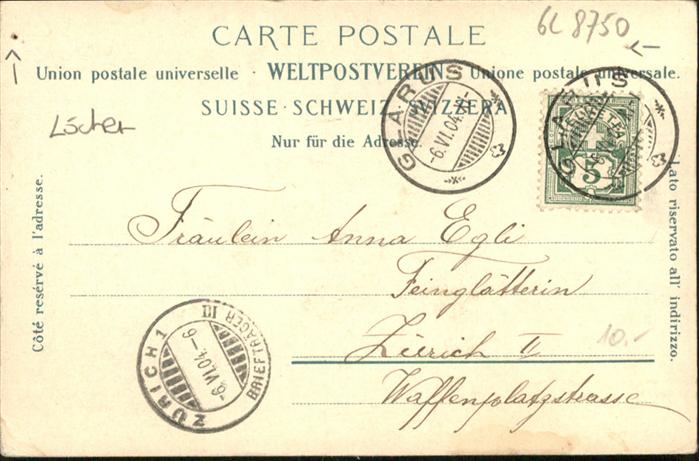 GL 8750
CARTE POSTALE
Union postale universelle · WELTPOSTVEREIN · Unione postale universale.
SUISSE · SCHWEIZ · SVIZZERA
Nur für die Adresse.
Löcher
GLARUS
-6.VI.04.
GLARUS
5
Côté reservé à l'adresse.
Lato riservato all' indirizzo.
Fräulein Anna Egli
Feinglätterin
Zürich II
10.-
Waffenplatzstrasse
ZÜRICH 1
BRIEFTRÄGER III
-6.VI.04.-6